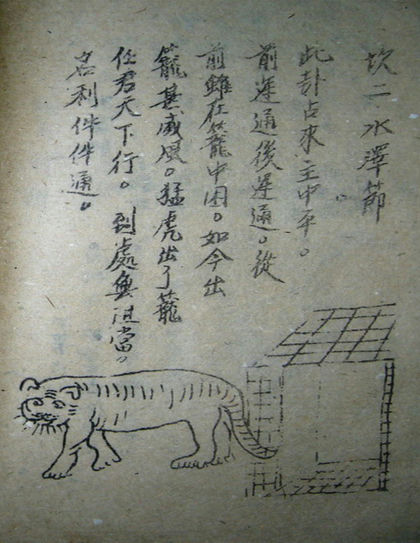 坎二水澤節
此卦占來主中平。
前運通後運通。從
前雖在籠中困。如今出
籠甚威風。猛虎出了籠
任君天下行。到處無阻當。
名利件件通。